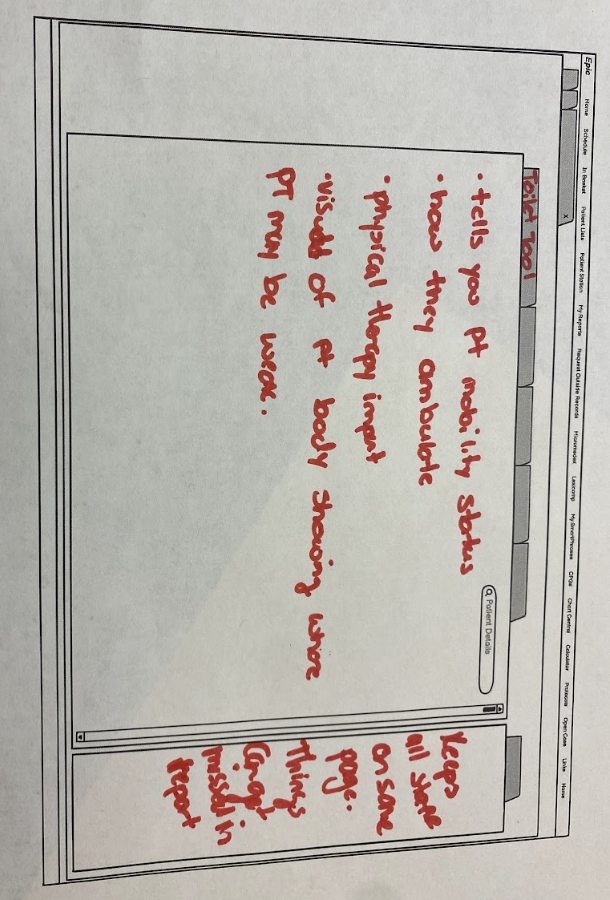 Epic
Home Schedule In Basket Patient Lists Patient Station My Reports Request Outside Records Micromedex Lexicomp My SmartPhrases CPGs Chart Central Calculator Open Case Links Home
X
Toilet Tool
Patient Details
• tells you pt mobility status
• how they ambulate
• physical therapy input
• visual of pt body showing where
PT may be weak.
Keeps
all staff
on same
page.
Things
can get
missed in
report